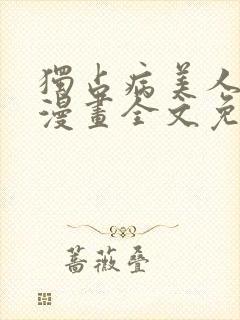 獨占病美人
漫畫全文免
蔷薇叠